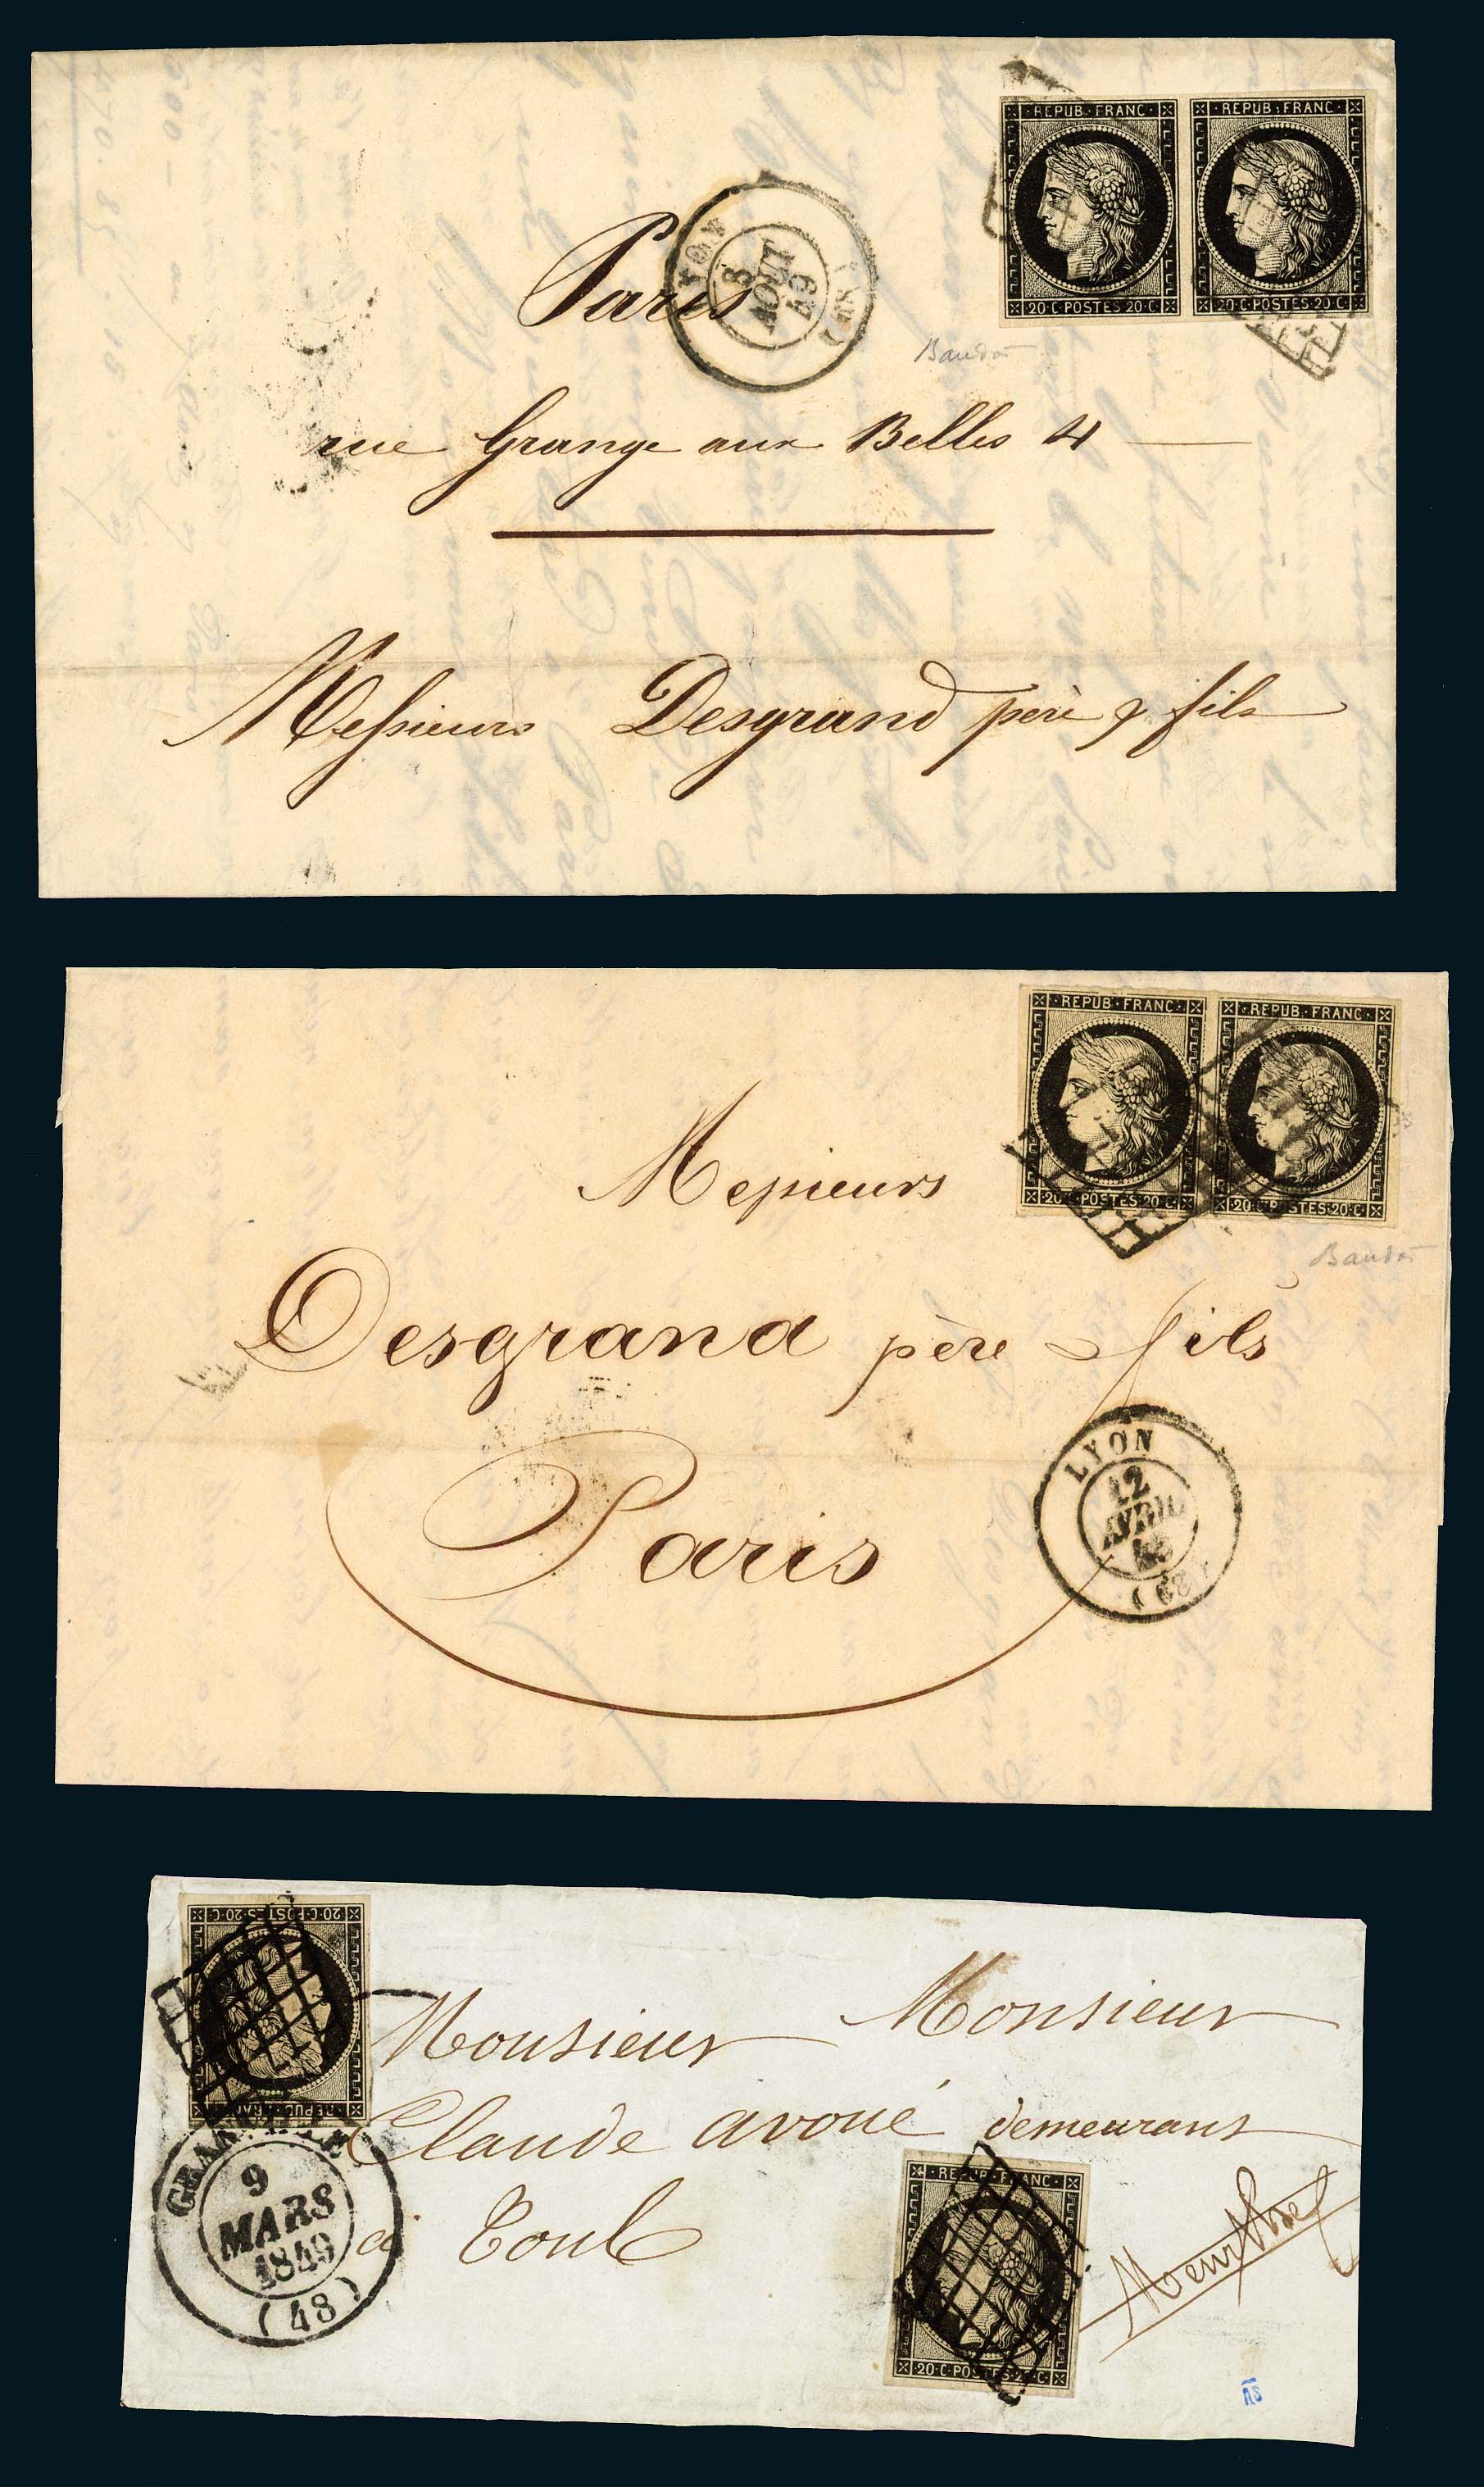 REPUB·FRANC· REPUB·FRANC·
20·C·POSTES·20·C· 20·C·POSTES·20·C·
LYON
8
AOUT
49
Baudot
Paris
rue Grange aux Belles 4
Messieurs Desgrand père & fils
REPUB·FRANC· REPUB·FRANC·
20·C·POSTES·20·C· 20·C·POSTES·20·C·
Baudot
Messieurs
Desgrand père & fils
Paris
LYON
12
AVRIL
(68)
20·C·POSTES·20·C·
REPUB·FRANC·
GRANVILLE
9
MARS
1849
(48)
Monsieur Monsieur
Claude avoué demeurant
à Toul
REPUB·FRANC·
20·C·POSTES·20·C·
Meurthe